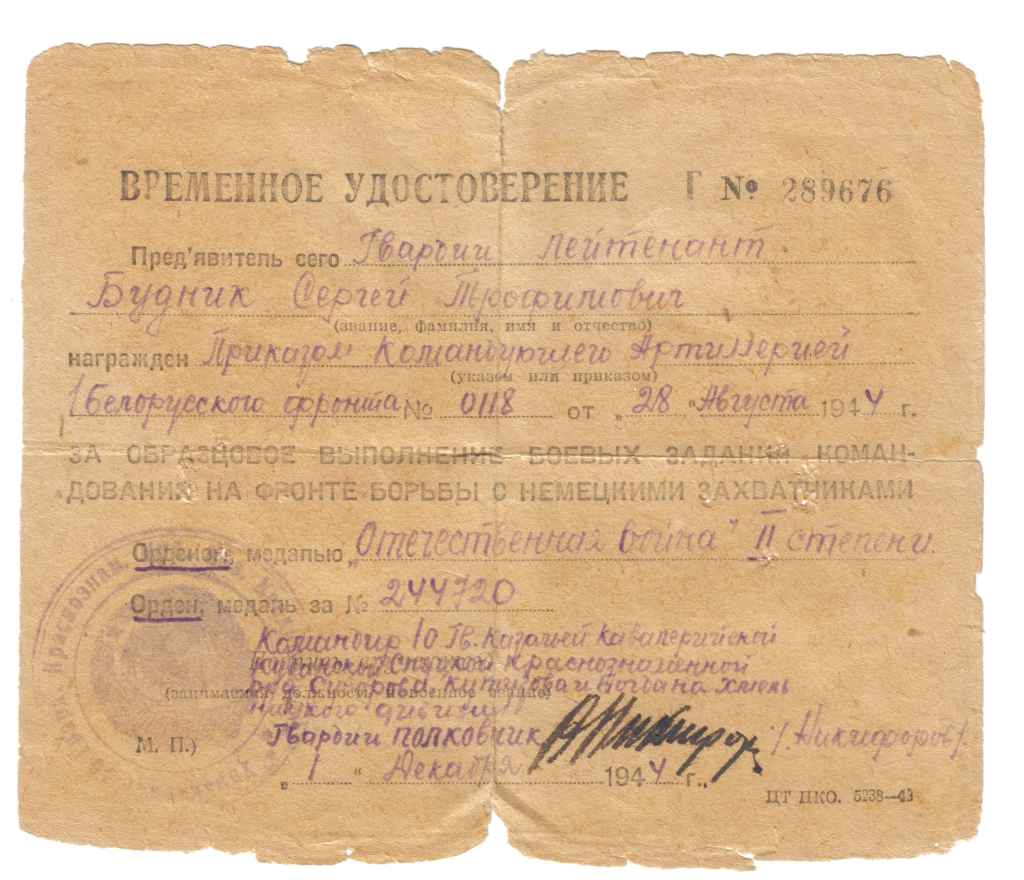 ВРЕМЕННОЕ УДОСТОВЕРЕНИЕ Г № 289676
Пред'явитель сего Гвардии лейтенант
Будник Сергей Трофимович
(звание, фамилия, имя и отчество)
награжден Приказом Командующего Артиллерией
(указом или приказом)
1 Белорусского фронта № 0118 от „28" Августа 1944 г.
ЗА ОБРАЗЦОВОЕ ВЫПОЛНЕНИЕ БОЕВЫХ ЗАДАНИЙ КОМАН-
ДОВАНИЯ НА ФРОНТЕ БОРЬБЫ С НЕМЕЦКИМИ ЗАХВАТЧИКАМИ
Орденом, медалью „Отечественная война" II степени.
Орден, медаль за № 244720
Командир 10 Гв. Казачьей Кавалерийской
Кубанской Слуцкой Краснознаменной
Суворова Кутузова и Богдана Хмель
(занимаемая должность, военное звание)
ницкого дивизии
М. П.) Гвардии полковник /Никифоров/.
„1" Декабря 1944 г.
ЦТ НКО. 5238—43